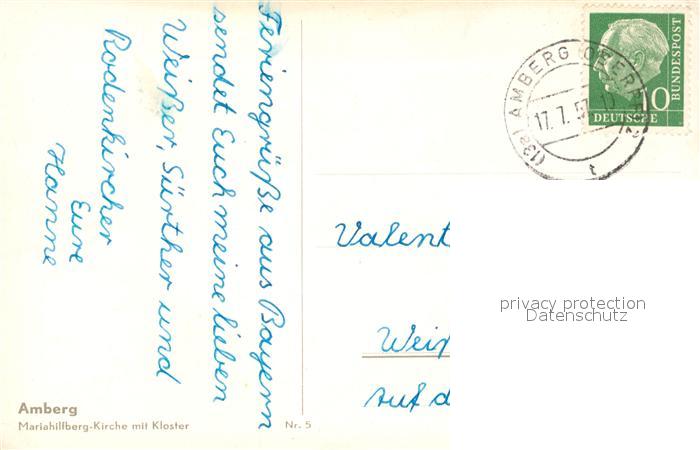 Feriengrüße aus Bayern
sendet Euch meine lieben
Weißer, Sürther und
Rodenkircher
Eure
Hanne
Amberg
Mariahilfberg-Kirche mit Kloster
Nr. 5
(13a) AMBERG (OBERPF)
17.7.57
t
10
DEUTSCHE
BUNDESPOST
Valent
Weiß
Auf d
privacy protection
Datenschutz